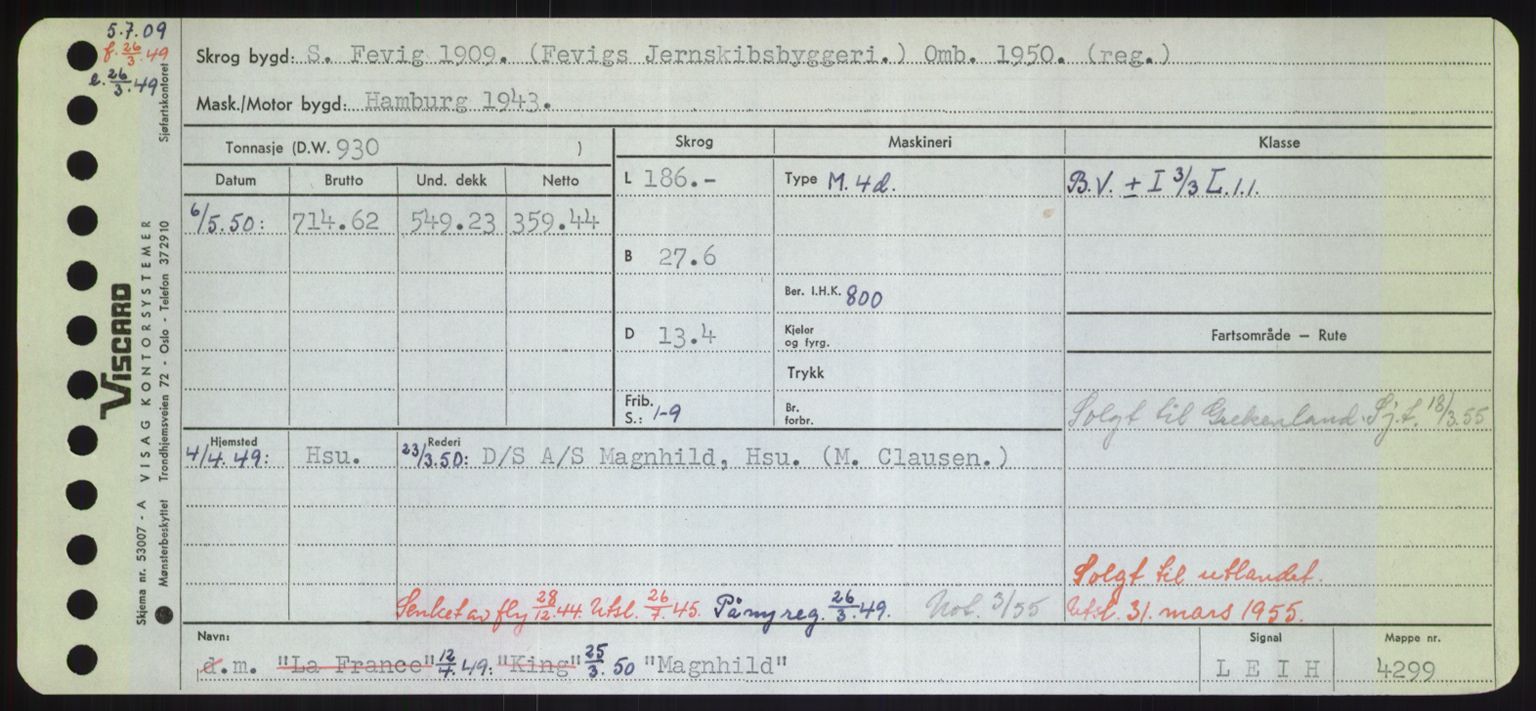 5.7.09
f. 26/3.49
e. 26/3.49
Skrog bygd: S. Fevig 1909. (Fevigs Jernskibsbyggeri.) Omb. 1950. (reg.)
Mask./Motor bygd: Hamburg 1943.
Tonnasje (D.W. 930 )
Skrog Maskineri Klasse
Datum Brutto Und. dekk Netto
L 186.- Type M. 4d. B.V. ± I 3/3 L.1.1.
6/5.50: 714.62 549.23 359.44
B 27.6
Ber. I.H.K. 800
D 13.4 Kjeler og fyrg. Fartsområde — Rute
Trykk
Frib. S.: 1-9 Br. forbr. Solgt til Grekenland. Sj.t. 18/3.55
Hjemsted Rederi
4/4.49: Hsu. 23/3.50: D/S A/S Magnhild, Hsu. (M. Clausen.)
Solgt til utlandet.
Senket av fly 28/12.44. Utsl. 26/7.45. På ny reg. 26/3.49. Not. 3/55 Utsl. 31. mars 1955.
Navn: Signal Mappe nr.
d.m. "La France" 12/4.49: "King" 25/3.50 "Magnhild" L E I H 4299
VISCARD
Skjema nr. 53007 - A VISAG KONTORSYSTEMER
Mønsterbeskyttet Trondhjemsveien 72 - Oslo - Telefon 372910
Sjøfartskontoret